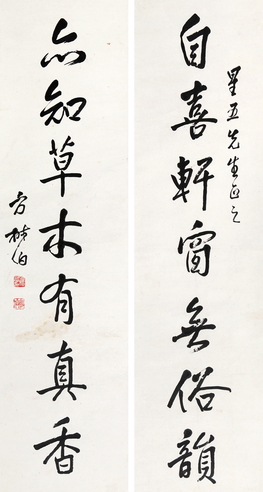 星五先生正之
自喜軒窗無俗韻
亦知草木有真香
方樹伯